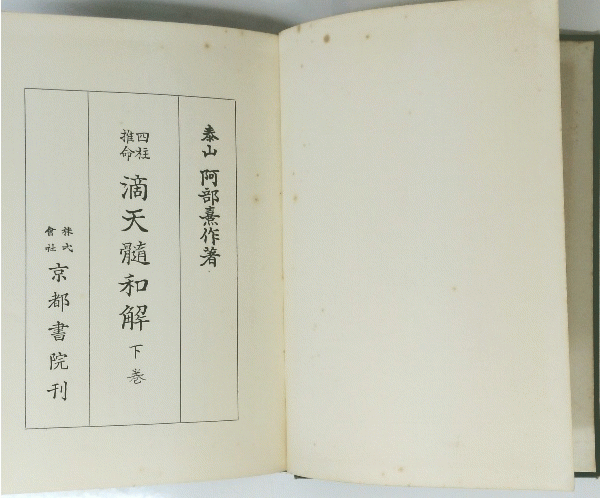 泰山 阿部熹作著
四柱推命 滴天髓和解 下巻
株式會社 京都書院刊